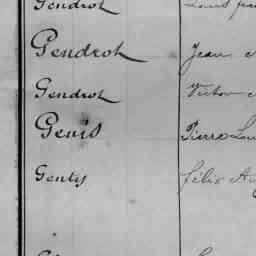 Gendrot Louis
Gendrot Jean
Gendrot Victor
Genis Pierre Lou
Gentis Félix A